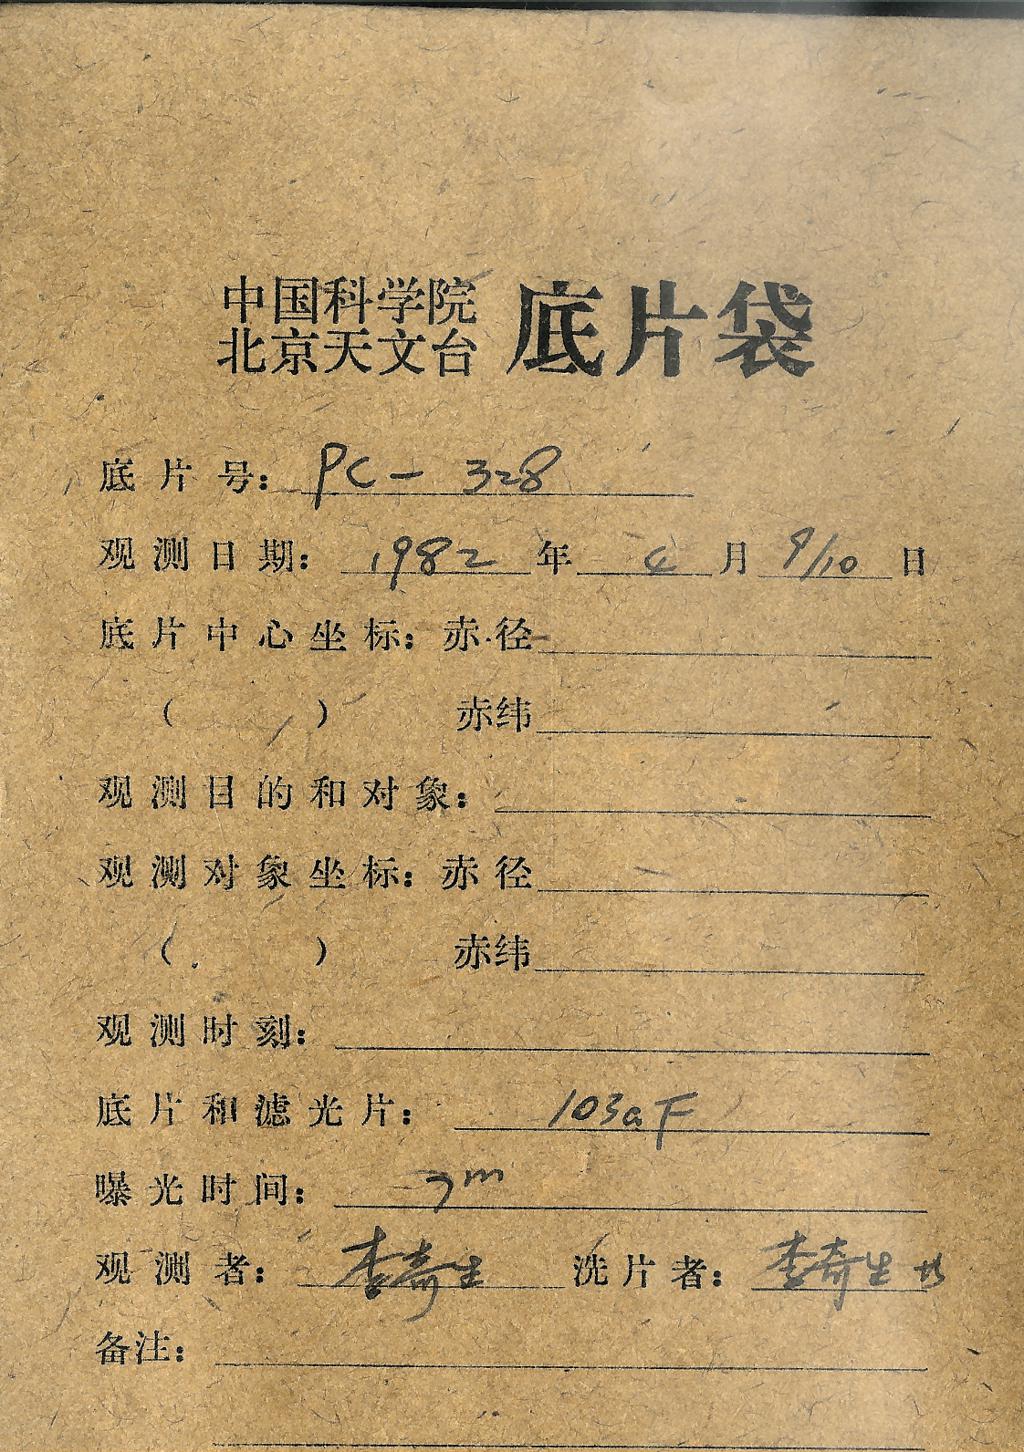 中国科学院
北京天文台
底片袋
底片号: PC-328
观测日期: 1982年4月9/10日
底片中心坐标: 赤径
( ) 赤纬
观测目的和对象:
观测对象坐标: 赤径
( ) 赤纬
观测时刻:
底片和滤光片: 103aF
曝光时间: 7m
观测者: 李奇生 洗片者: 李奇生
备注: